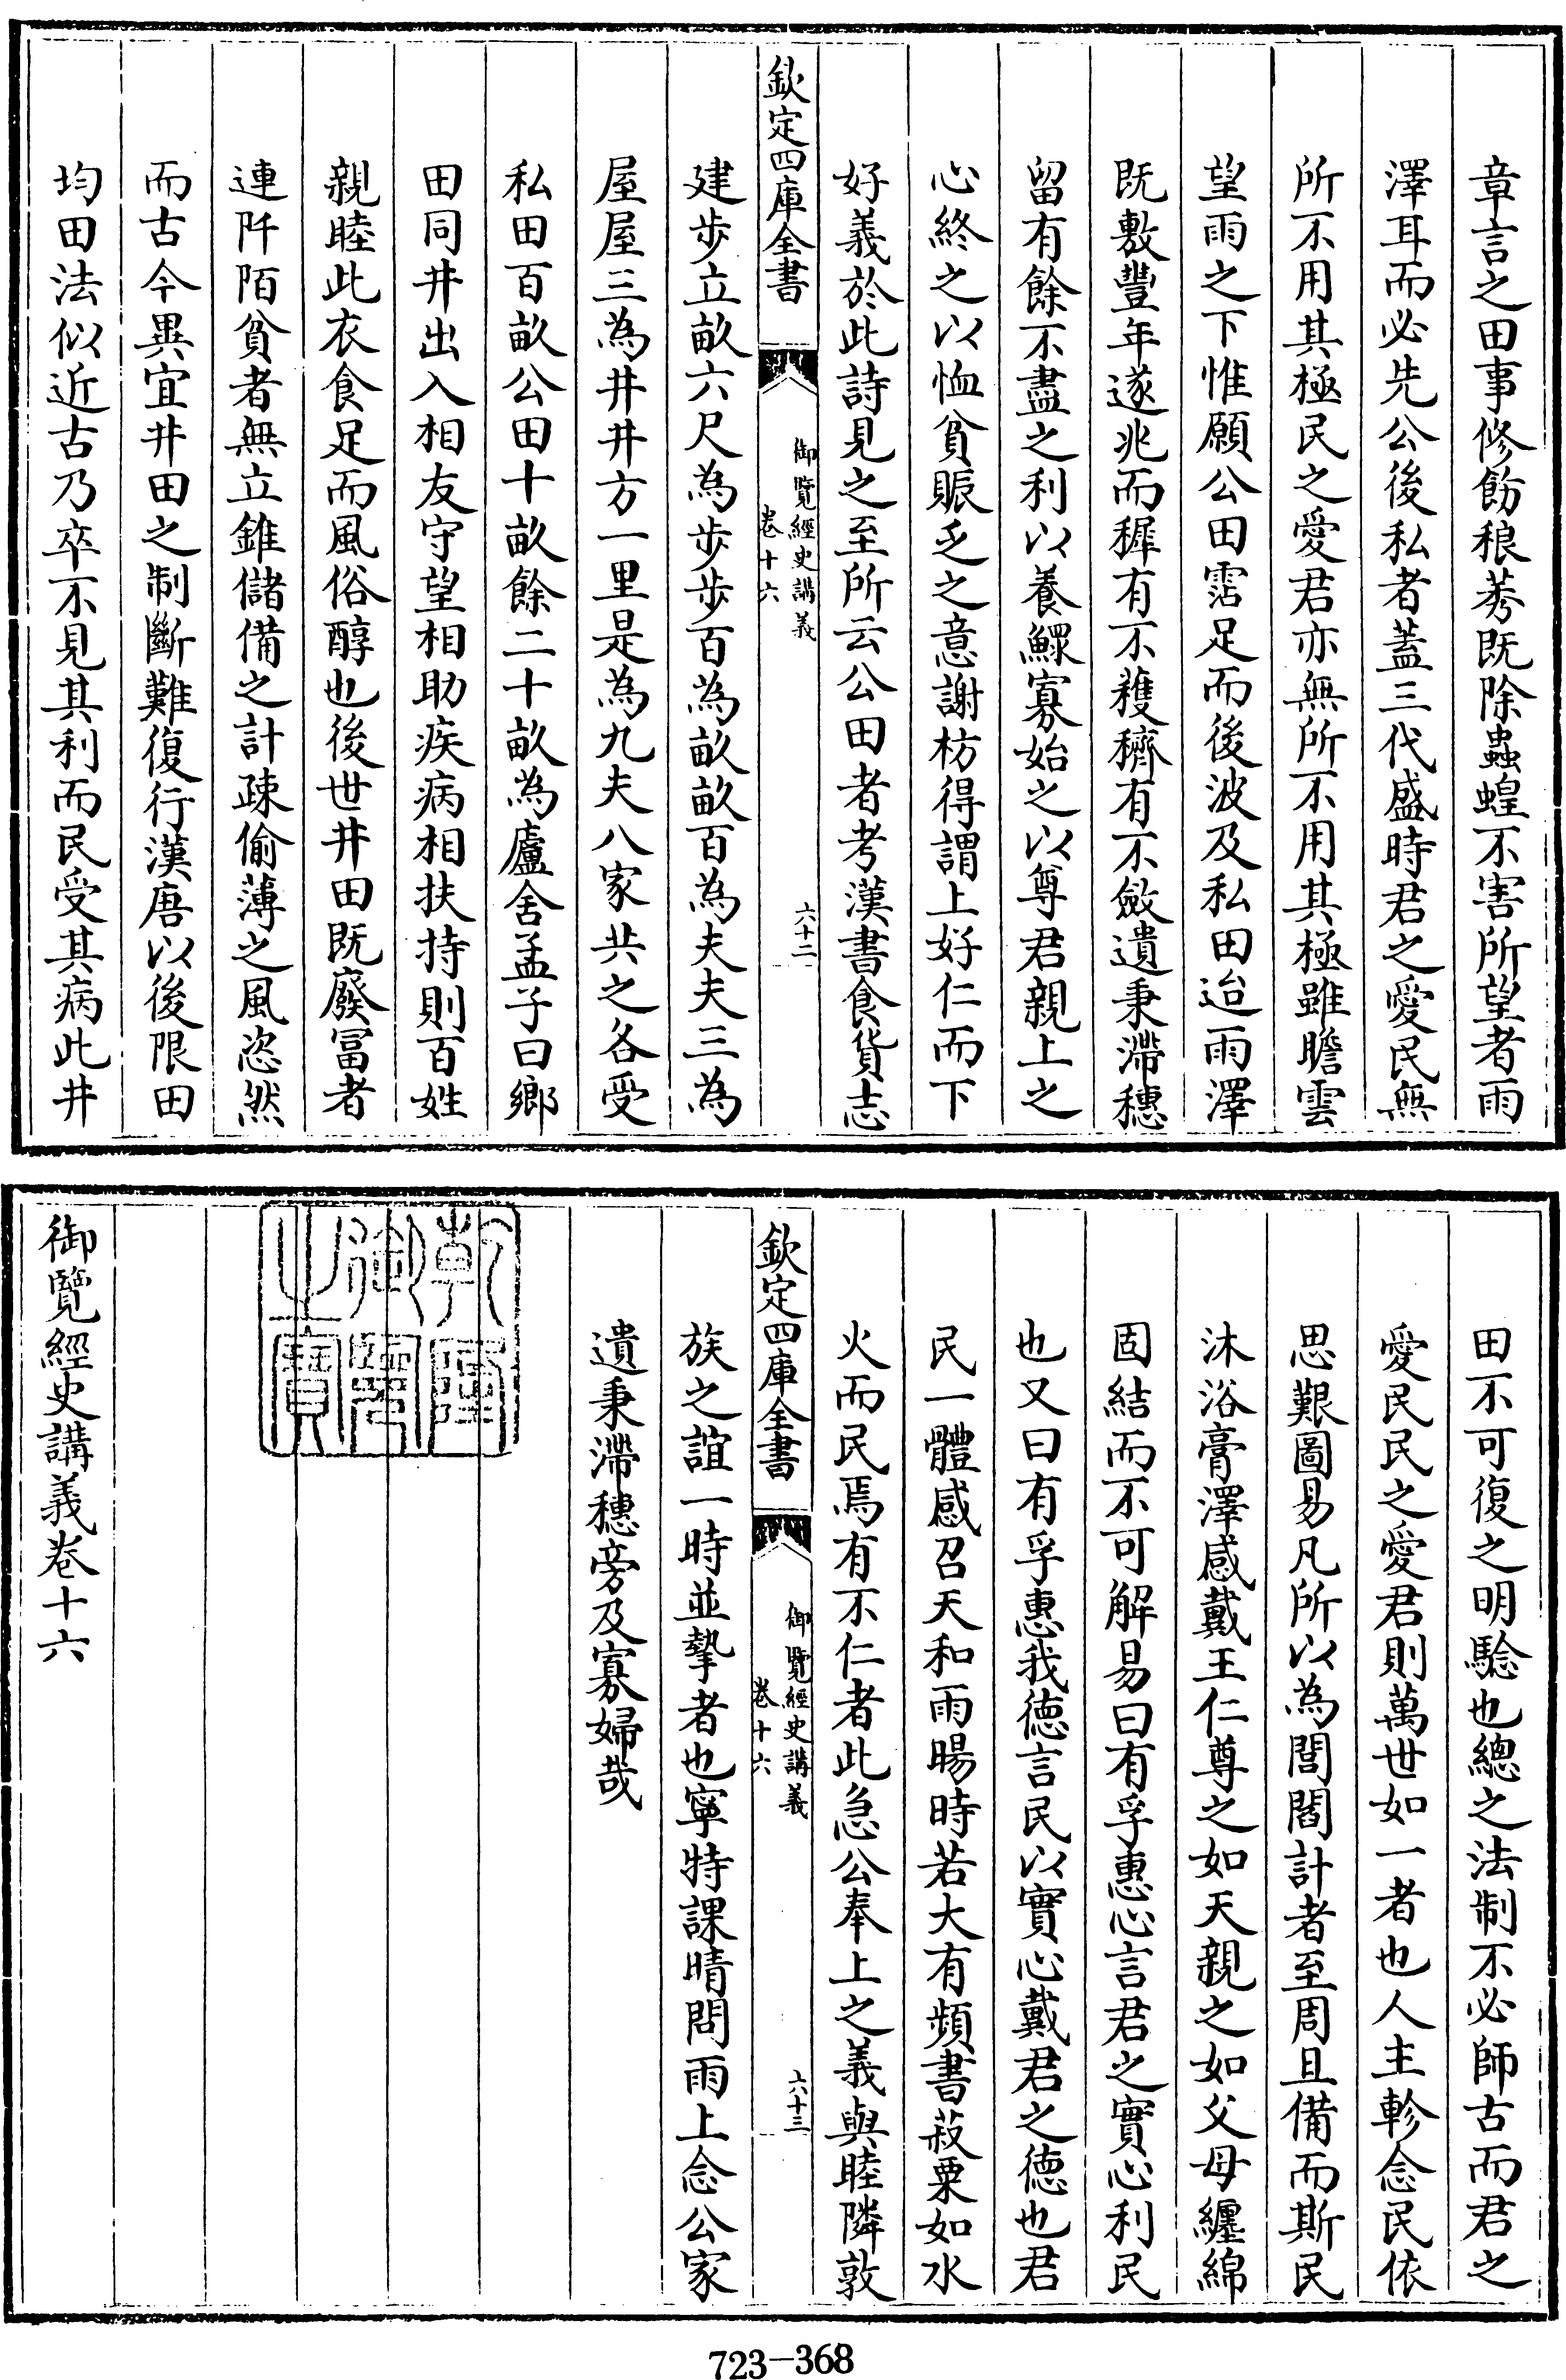 章言之田事修飭稂莠既除蟲蝗不害所望者雨
澤耳而必先公後私者蓋三代盛時君之愛民無
所不用其極民之愛君亦無所不用其極雖瞻雲
望雨之下惟願公田霑足而後波及私田迨雨澤
既敷豐年遂兆而穉有不穫穧有不斂遺秉滯穗
留有餘不盡之利以養鰥寡始之以尊君親上之
心終之以恤貧賑乏之意謝枋得謂上好仁而下
好義於此詩見之至所云公田者考漢書食貨志
欽定四庫全書
御覽經史講義
卷十六
六十二
建步立畝六尺為步步百為畝畝百為夫夫三為
屋屋三為井井方一里是為九夫八家共之各受
私田百畝公田十畝餘二十畝為廬舍孟子曰鄉
田同井出入相友守望相助疾病相扶持則百姓
親睦此衣食足而風俗醇也後世井田既廢冨者
連阡陌貧者無立錐儲備之計疎偷薄之風恣然
而古今異宜井田之制斷難復行漢唐以後限田
均田法似近古乃卒不見其利而民受其病此井
田不可復之明驗也總之法制不必師古而君之
愛民民之愛君則萬世如一者也人主軫念民依
思艱圖易凡所以為閭閻計者至周且備而斯民
沐浴膏澤感戴王仁尊之如天親之如父母纏綿
固結而不可解易曰有孚惠心言君之實心利民
也又曰有孚惠我德言民以實心戴君之德也君
民一體感召天和雨暘時若大有頻書菽粟如水
火而民焉有不仁者此急公奉上之義與睦隣敦
欽定四庫全書
御覽經史講義
卷十六
六十三
族之誼一時並摯者也寧特課晴問雨上念公家
遺秉滯穗旁及寡婦哉
乾隆御覽之寶
御覽經史講義卷十六
723-368